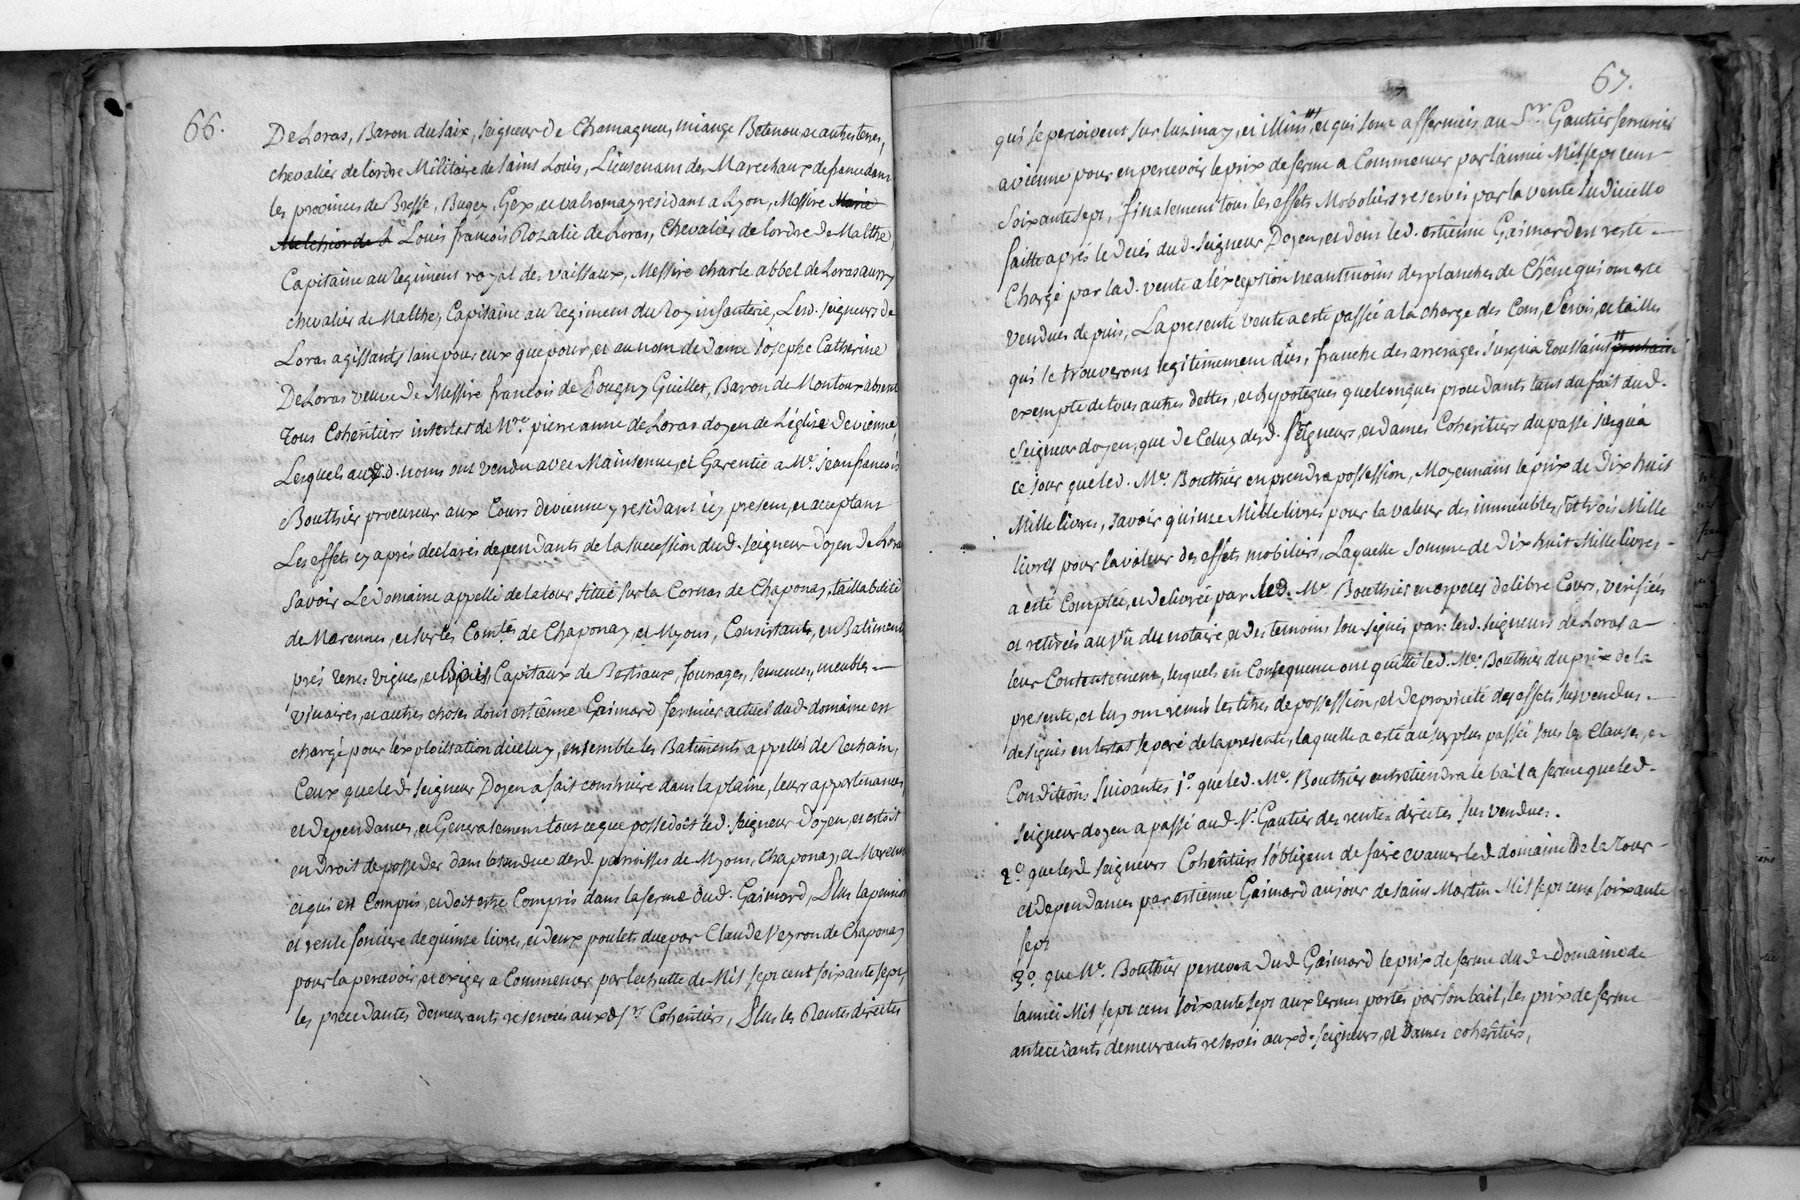 66.
De Loras, Baron du Saix, seigneur de Chamagneu, miange Betenou et autres terres,
chevalier de lordre Militaire de saint Louis, Lieutenant des Marechaux de france dans
les provinces de Bresse, Bugey, Gex, et valromay residant a Lyon, Messire Marie
Melchior de L Louis françois Rozalie de Loras, Chevalier de lordre de Malthe,
Capitaine au Regiment royal des vaissaux, Messire charle abbel de Loras aussy
chevalier de Malthe, Capitaine au Regiment du Roy infanterie, Lesd. seigneurs de
Loras agissants tant pour eux que pour, et au nom de dame josephe Catherine
De Loras veuve de Messire françois de Bougny Guillet, Baron de Montoux absent
Tous Cohéritiers intestat de Mre. pierre anne de Loras doyen de Léglise de vienne,
Lesquels auxd. noms ont vendu avec Maintenue, et Garentie a Me. jean françois
Bouthier procureur aux Cours de vienne y residant icy present, et acceptant
Les effets cy aprés declarés dependants de la succession dud. seigneur doyen de Loras
savoir Le domaine appellé de latour situé sur la Cornas de Chaponay, taillabilité
de Marennes, et sur les Comtés de Chaponay, et Myons, Consistants, en Batiments
prés terres vignes, et Bois, Capitaux de Bestiaux, fourrages, semences, meubles
vinaires, et autres choses dont estiênne Gaimard fermier actuel dud. domaine est
chargé pour léxploitation diceluy, ensemble les Batiments appellés de Rechain,
Ceux que led. seigneur Doyen a fait construire dans la plaine, leurs appartenances
et dependances, et Generalement tout ce que possedoit led. seigneur doyen, et estoit
en droit de posseder dans létendue desd. parroisses de Myons, Chaponay, et Marennes
et qui est Compris, et doit estre Compris dans la ferme dud. Gaimard, Plus la pension
et rente fonciere de quinse livres, et deux poulets due par Claude Veyron de Chaponay
pour la percevoir, et exiger a Commencer par léchutte de Mil sept cent soixante sept,
les precedantes demeurants reservées auxd. srs. Cohéritiers, Plus les Rentes directes
67.
qui se percoivent sur Luzinay, et illins, et qui sont affermées au Sr. Gautier
a vienne pour en percevoir le prix de ferme a Commencer par lannée Mil sept cent
soixante sept, finalement tous les effets Mobiliers reservés par la vente judicielle
faitte aprés le decés dud. seigneur Doyen, et dont led. estiênne Gaimard est resté
Chargé par lad. vente a léxception neantmoins des planches de Chêne qui ont esté
vendues depuis, La presente vente a esté passée a la charge des Cens, servis, et tailles
qui se trouveront legitimement dûs, franche des arrerages jusqua toussaint prochain
exempte de tous autres dettes, et hypotéques quelconques procedants tant du fait dud.
seigneur doyen, que de Celuy desd. seigneurs, et dames Cohéritiers du passé jusqua
ce jour que led. Me. Bouthier en prendra possession, Moyennant le prix de dix huit
Mille livres, savoir quinze Mille livres pour la valeur des immeubles, et trois Mille
livres pour la valeur des effets mobiliers, Laquelle somme de dix huit Mille livres
a esté Comptée, et delivrée par led. Me. Bouthier en espéces de libre Cours, verifiées
et retirées au vû du notaire, et des temoins sou-signés par lesd. seigneurs de Loras a
leur Contentement, lesquels en Consequence ont quitté led. Me. Bouthier du prix de la
presente, et luy ont remis les titres de possession, et de proprieté des effets sus vendus
designés en lestat separé de la presente, laquelle a esté au surplus passée sous les Clauses, et
Conditions suivantes 1º. que led. Me. Bouthier entretiendra le bail a ferme que led.
seigneur doyen a passé aud. Sr. Gautier des rentes directes sus vendues.
2º. que lesd. seigneurs Cohéritiers s'obligent de faire evacuer led. domaine De la Tour
et dependances par estiênne Gaimard au jour de saint Martin Mil sept cent soixante
sept
3º. que Me. Bouthier percevra dud. Gaimard le prix de ferme dud. domaine de
lannée Mil sept cent soixante sept aux termes portés par son bail, les prix de ferme
antecedants demeurants reservés auxd. seigneurs, et Dames cohéritiers,